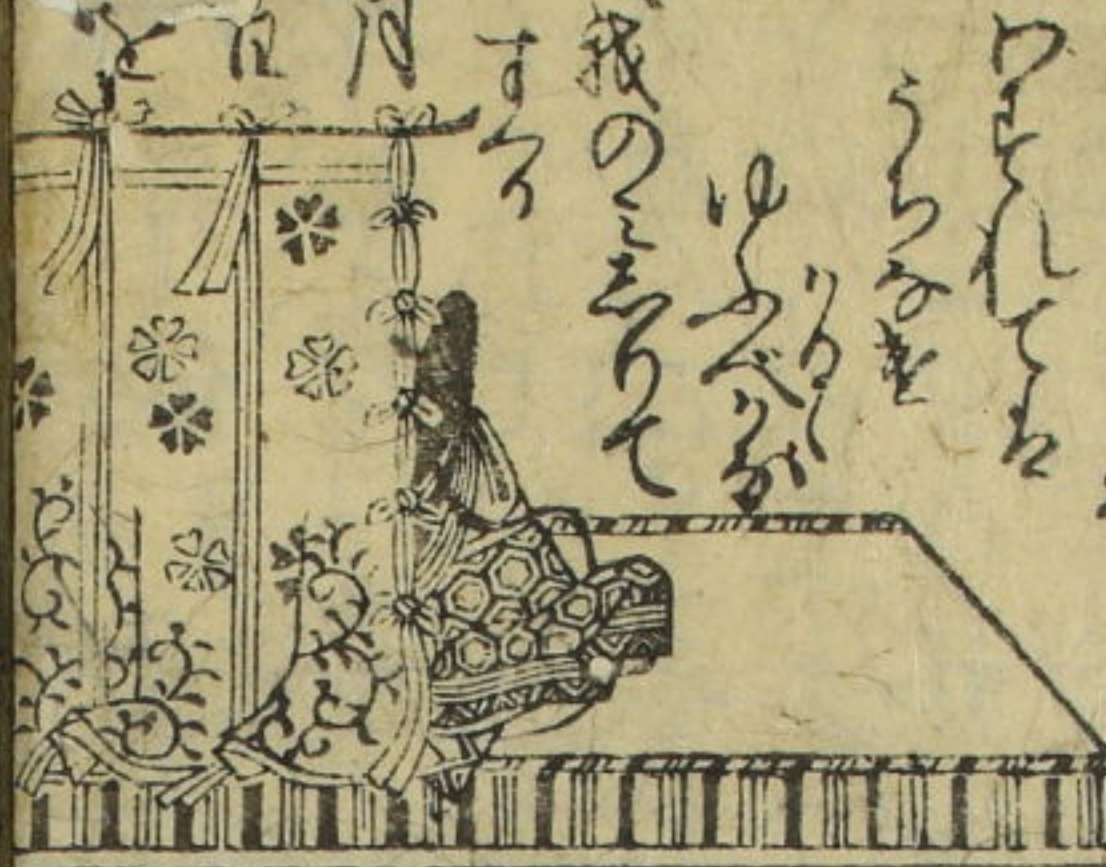 わすれては
うちなげ
かるゝ
ゆふべかな
我のみしりて
すぐる
月
日
を